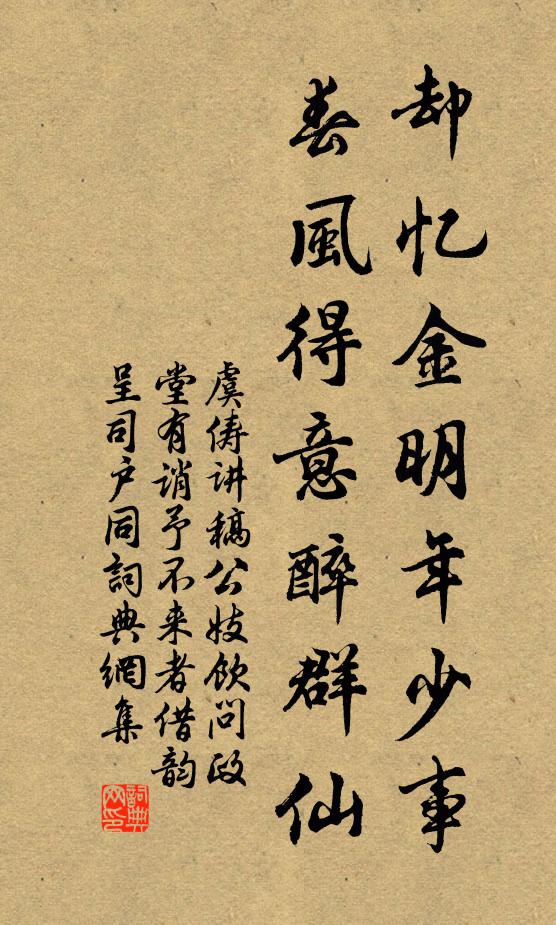 却忆金明年少事
春風得意醉群仙
虞俦讲稿公妓饮问政
堂有誚予不来者借韵
呈司户同詞典網集
詞典網印